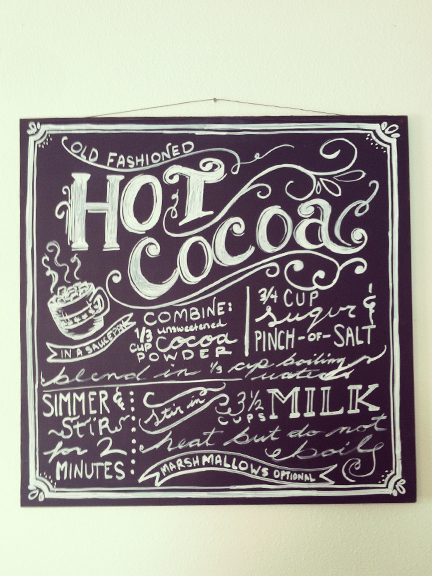 OLD FASHIONED
HOT
COCOA
IN A SAUCEPAN
COMBINE:
1/3 unsweetened
CUP cocoa
POWDER
3/4 CUP
sugar &
PINCH-OF-SALT
blend in 1/3 cup boiling
water
SIMMER &
stir
for 2
MINUTES
stir in 3 1/2
CUPS
MILK
heat but do not
boil
MARSHMALLOWS OPTIONAL